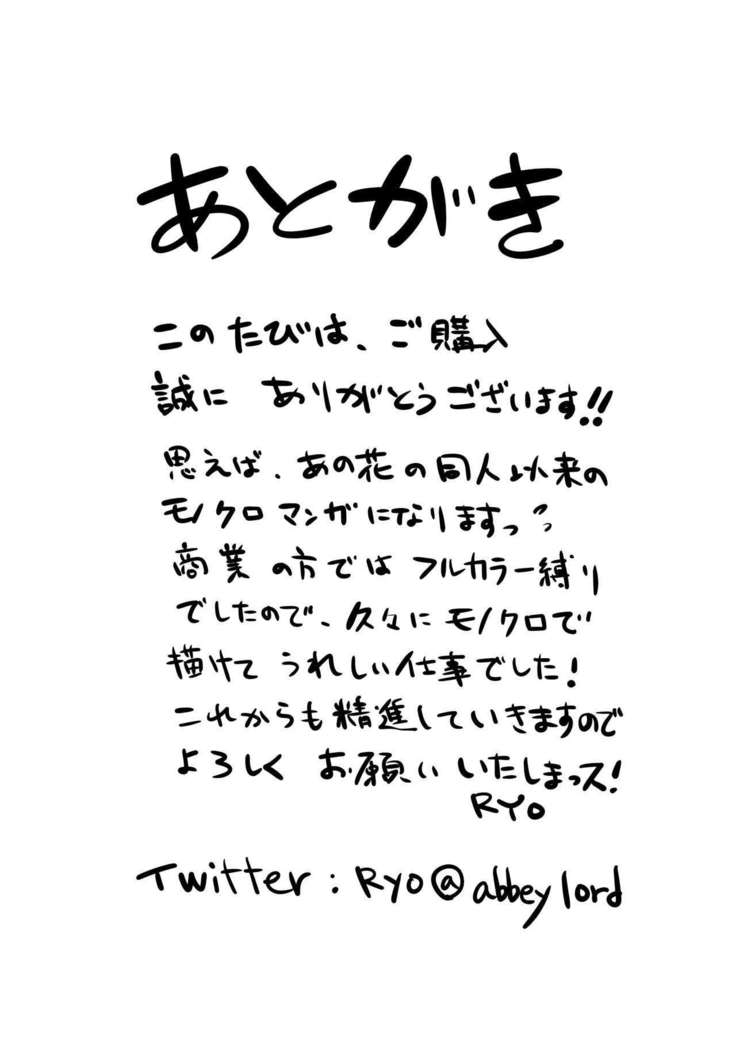 あとがき
このたびは、ご購入
誠に ありがとうございます!!
思えば、あの花の同人以来の
モノクロマンガになりますっ
商業の方ではフルカラー縛り
でしたので、久々にモノクロで
描けてうれしい仕事でした!
これからも精進していきますので
よろしく お願い いたしまっス!
RYO
Twitter : Ryo@abbeylord